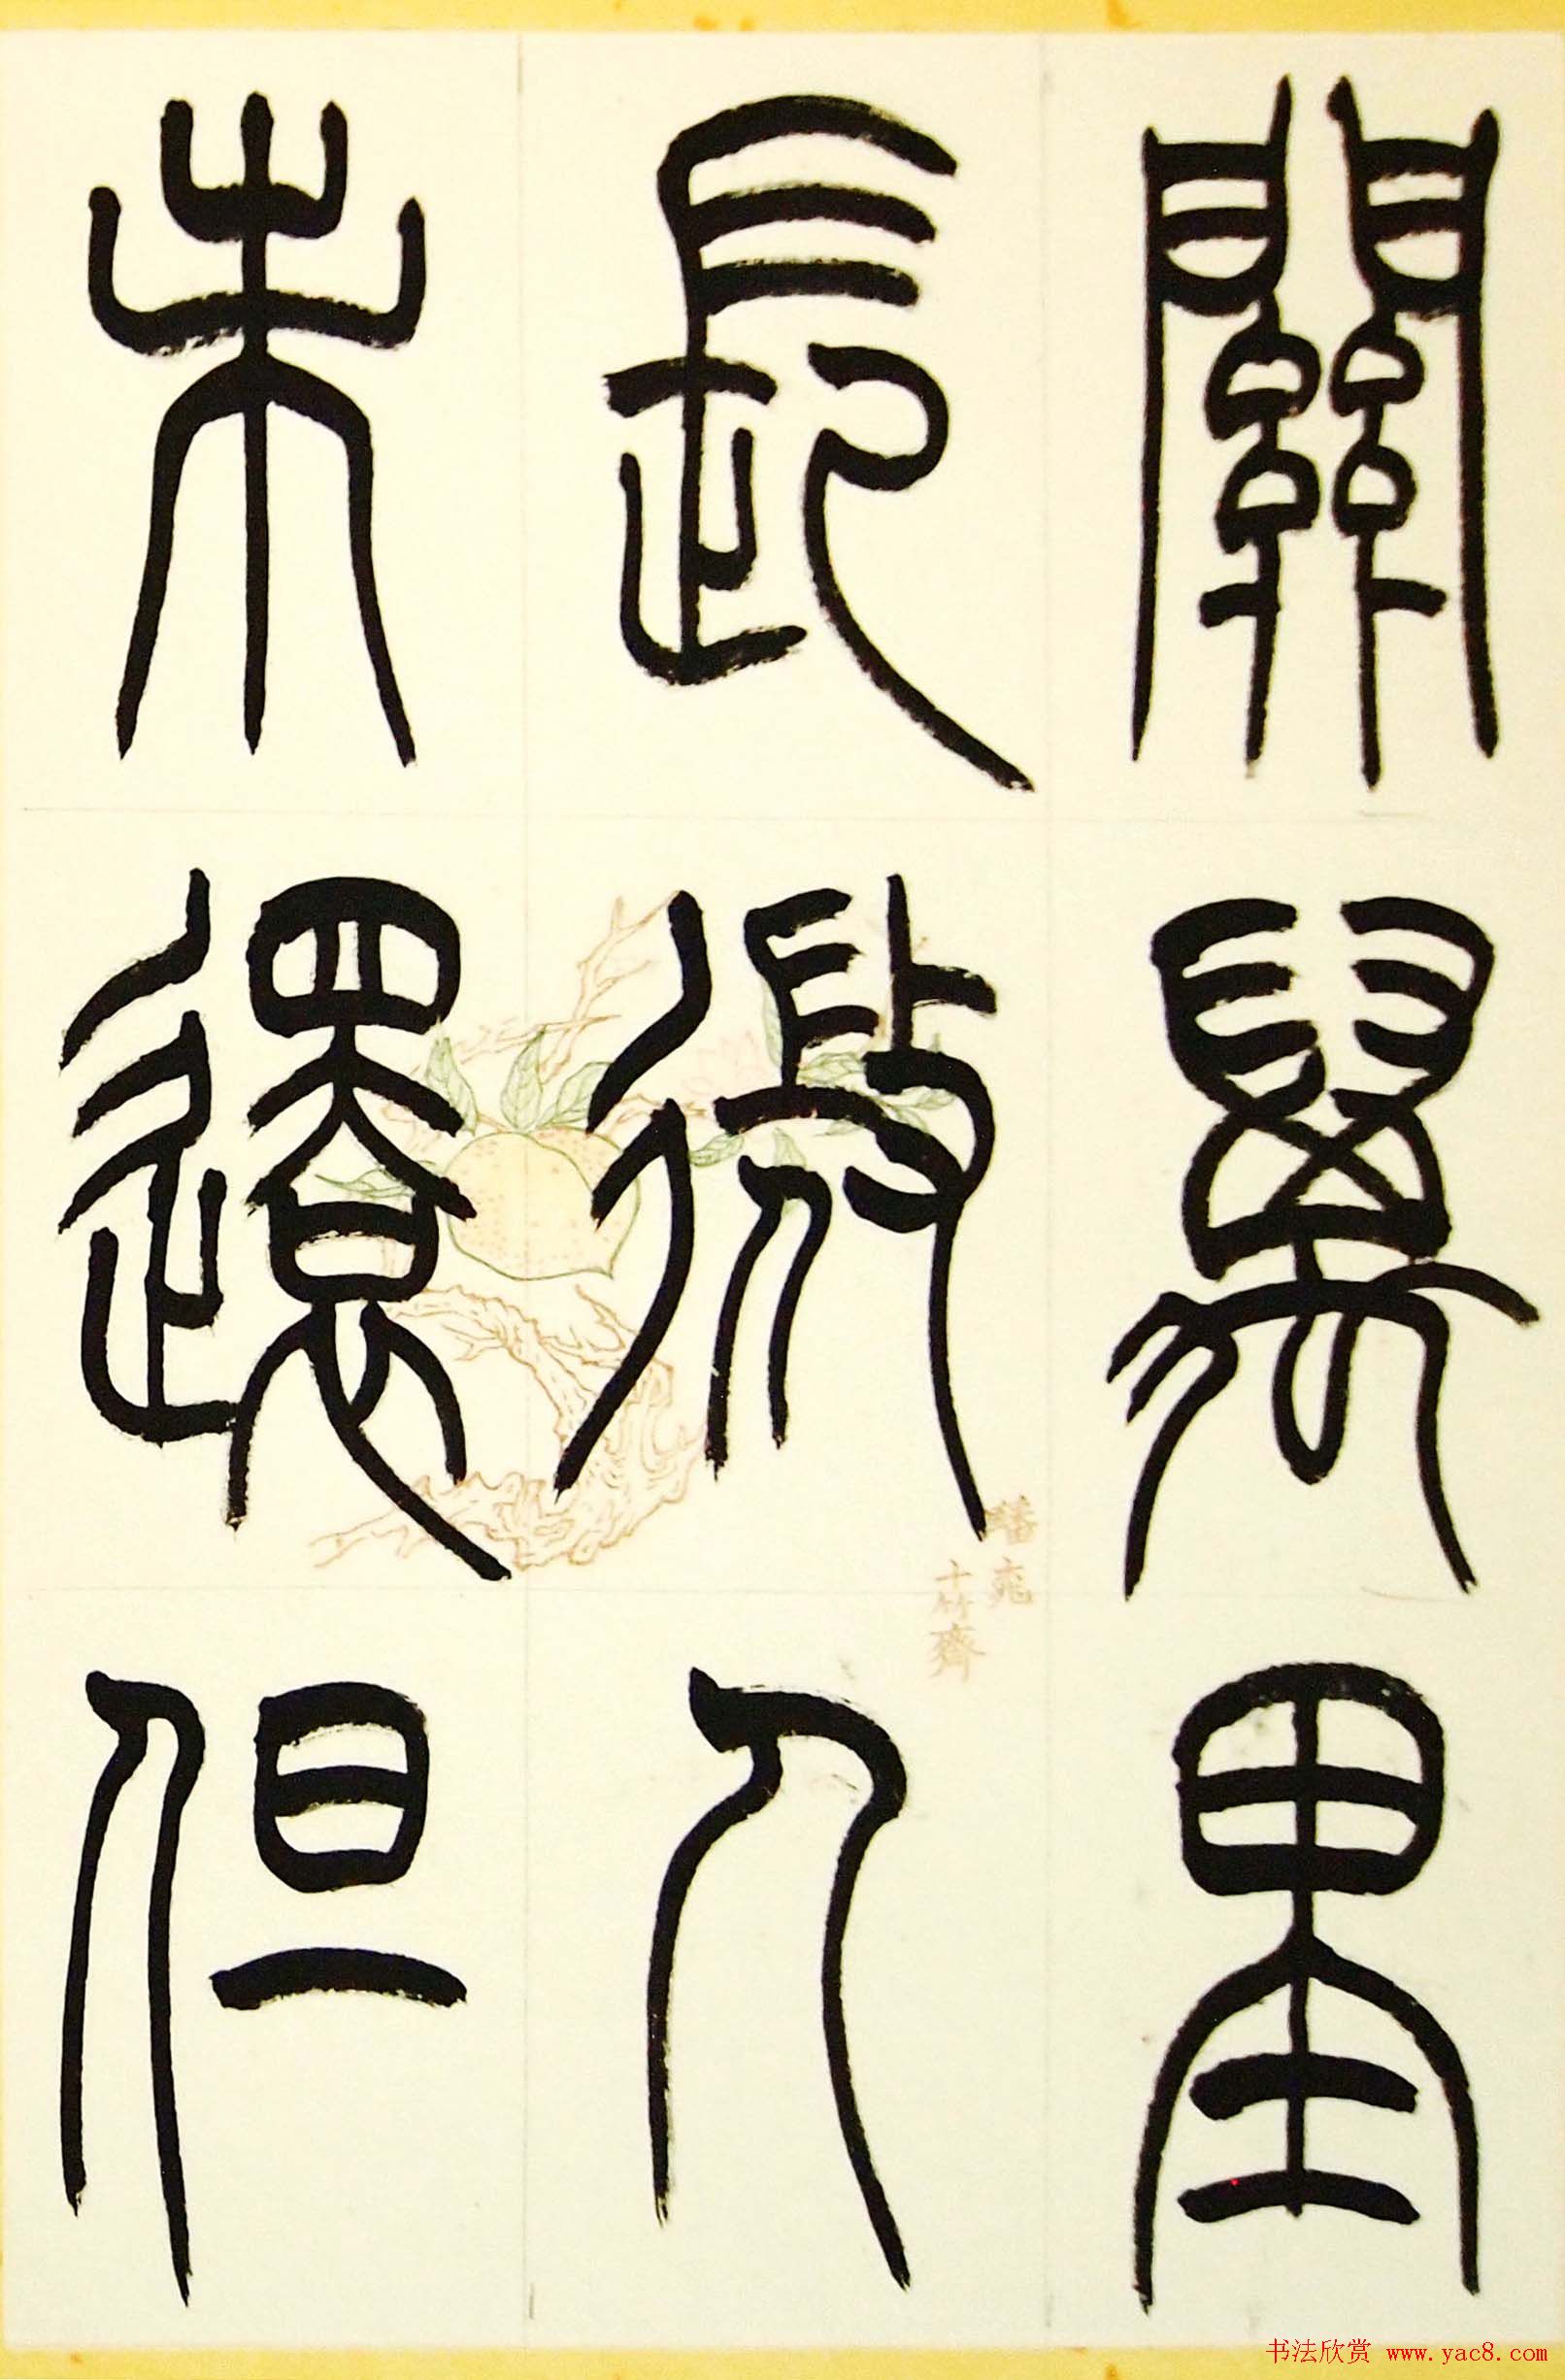 關萬里
長徵人
未還但
十竹齋
书法欣赏 www.yac8.com